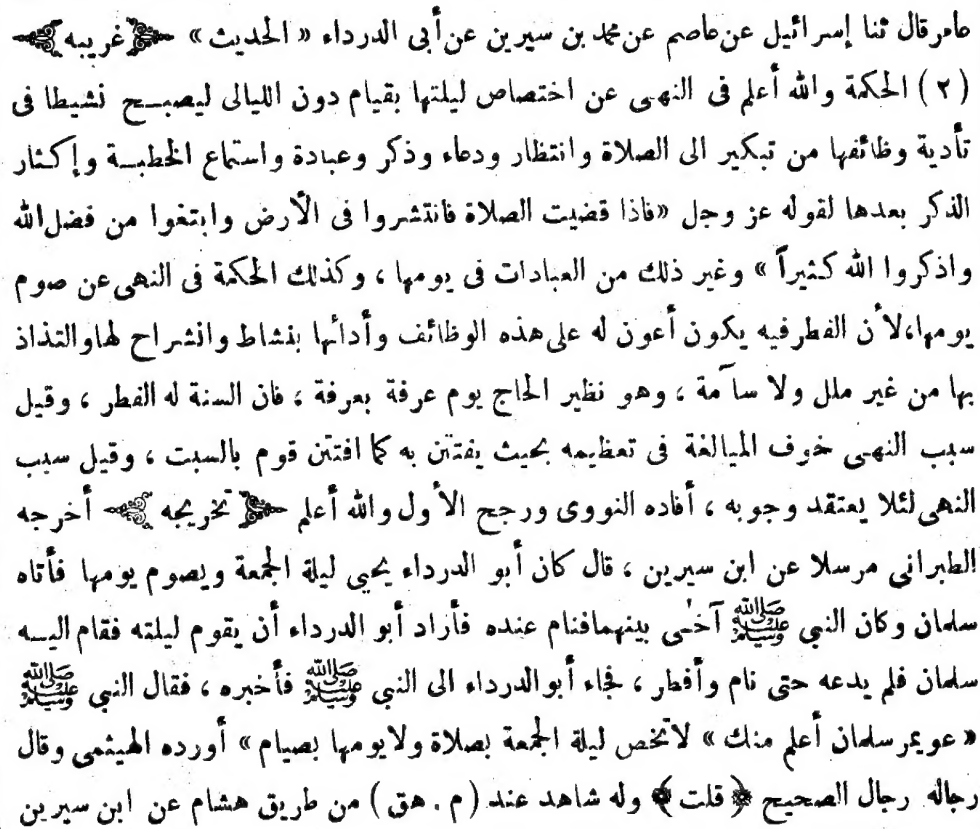 عامر قال ثنا إسرائيل عن عاصم عن محمد بن سيرين عن أبى الدرداء « الحديث » ﴿ غريبه ﴾
( ٢ ) الحكمة والله أعلم فى النهى عن اختصاص ليلتها بقيام دون الليالى ليصبح نشيطا فى
تأدية وظائفها من تبكير الى الصلاة وانتظار ودعاء وذكر وعبادة واستماع الخطبة وإكثار
الذكر بعدها لقوله عز وجل «فاذا قضيت الصلاة فانتشروا فى الأرض وابتغوا من فضل الله
واذكروا الله كثيراً » وغير ذلك من العبادات فى يومها ، وكذلك الحكمة فى النهى عن صوم
يومها،لأن الفطر فيه يكون أعون له على هذه الوظائف وأدائها بنشاط وانشراح لها والتذاذ
بها من غير ملل ولا سآمة ، وهو نظير الحاج يوم عرفة بعرفة ، فان السنة له الفطر ، وقيل
سبب النهى خوف المبالغة فى تعظيمه بحيث يفتتن به كما افتتن قوم بالسبت ، وقيل سبب
النهى لئلا يعتقد وجوبه ، أفاده النووى ورجح الأول والله أعلم ﴿ تخريجه ﴾ أخرجه
الطبراني مرسلا عن ابن سيرين ، قال كان أبو الدرداء يحيى ليلة الجمعة ويصوم يومها فأتاه
سلمان وكان النبي ﷺ آخى بينهما فنام عنده فأراد أبو الدرداء أن يقوم ليلته فقام اليه
سلمان فلم يدعه حتى نام وأفطر ، فجاء أبو الدرداء الى النبي ﷺ فأخبره ، فقال النبي ﷺ
« عويمر سلمان أعلم منك » لاتخص ليلة الجمعة بصلاة ولا يومها بصيام » أورده الهيثمى وقال
رجاله رجال الصحيح ﴿ قلت ﴾ وله شاهد عند ( م . هق ) من طريق هشام عن ابن سيرين